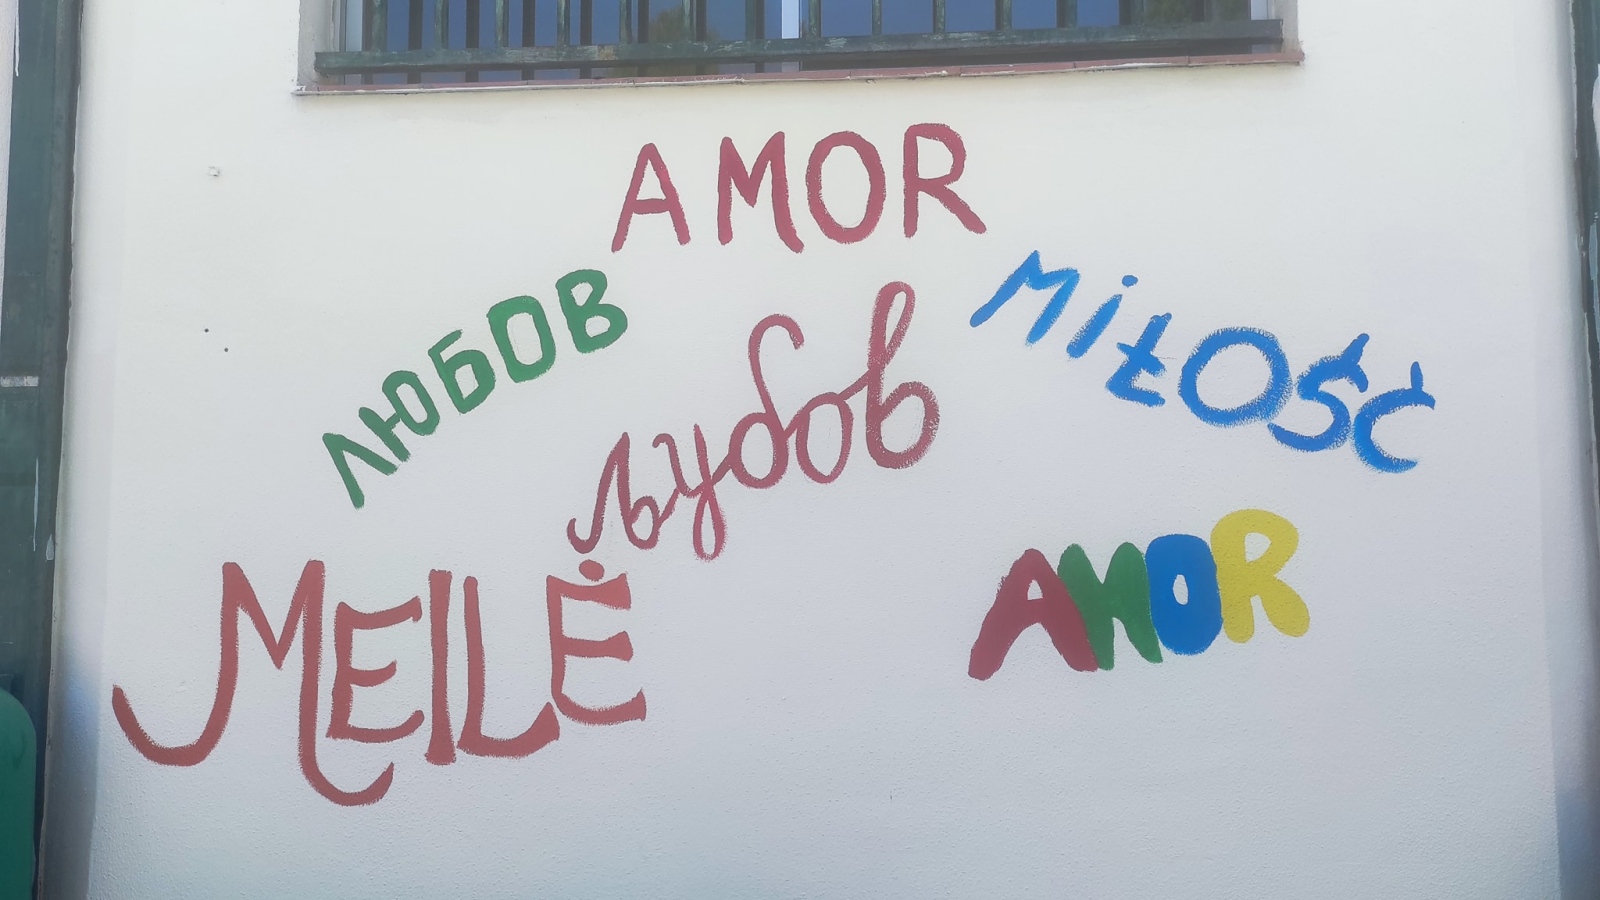 AMOR
ЛЮБОВ
MiŁOŚĆ
љубов
MEILĖ
AMOR